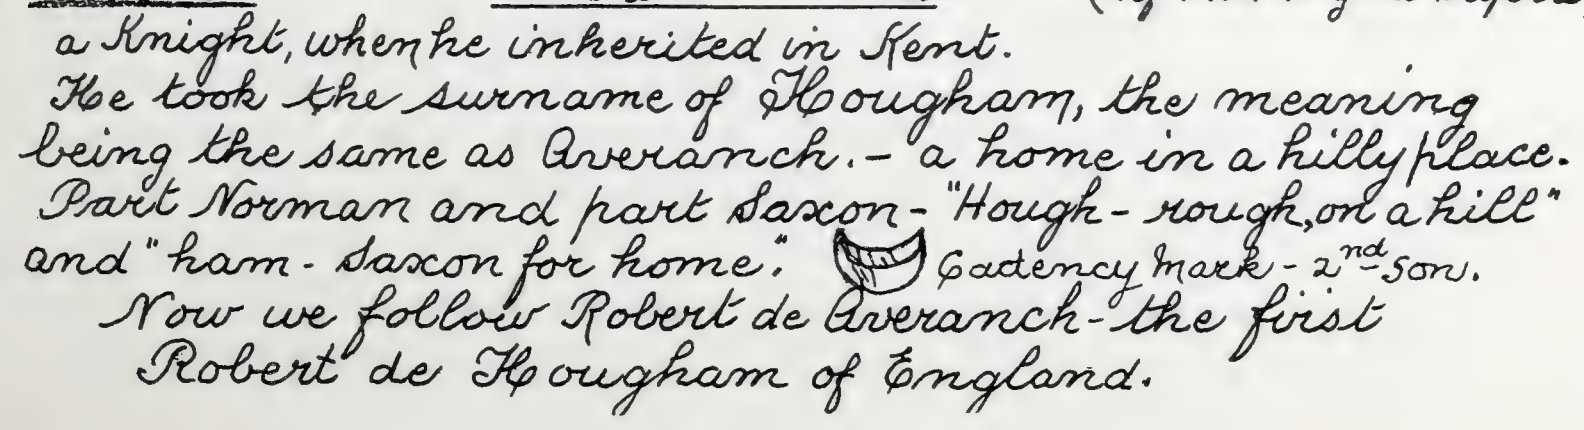 a Knight, when he inherited in Kent.
He took the surname of Hougham, the meaning
being the same as Averanch. - a home in a hilly place.
Part Norman and part Saxon - "Hough - rough, on a hill"
and "ham - Saxon for home." Cadency Mark - 2nd Son.
Now we follow Robert de Averanch - the first
Robert de Hougham of England.